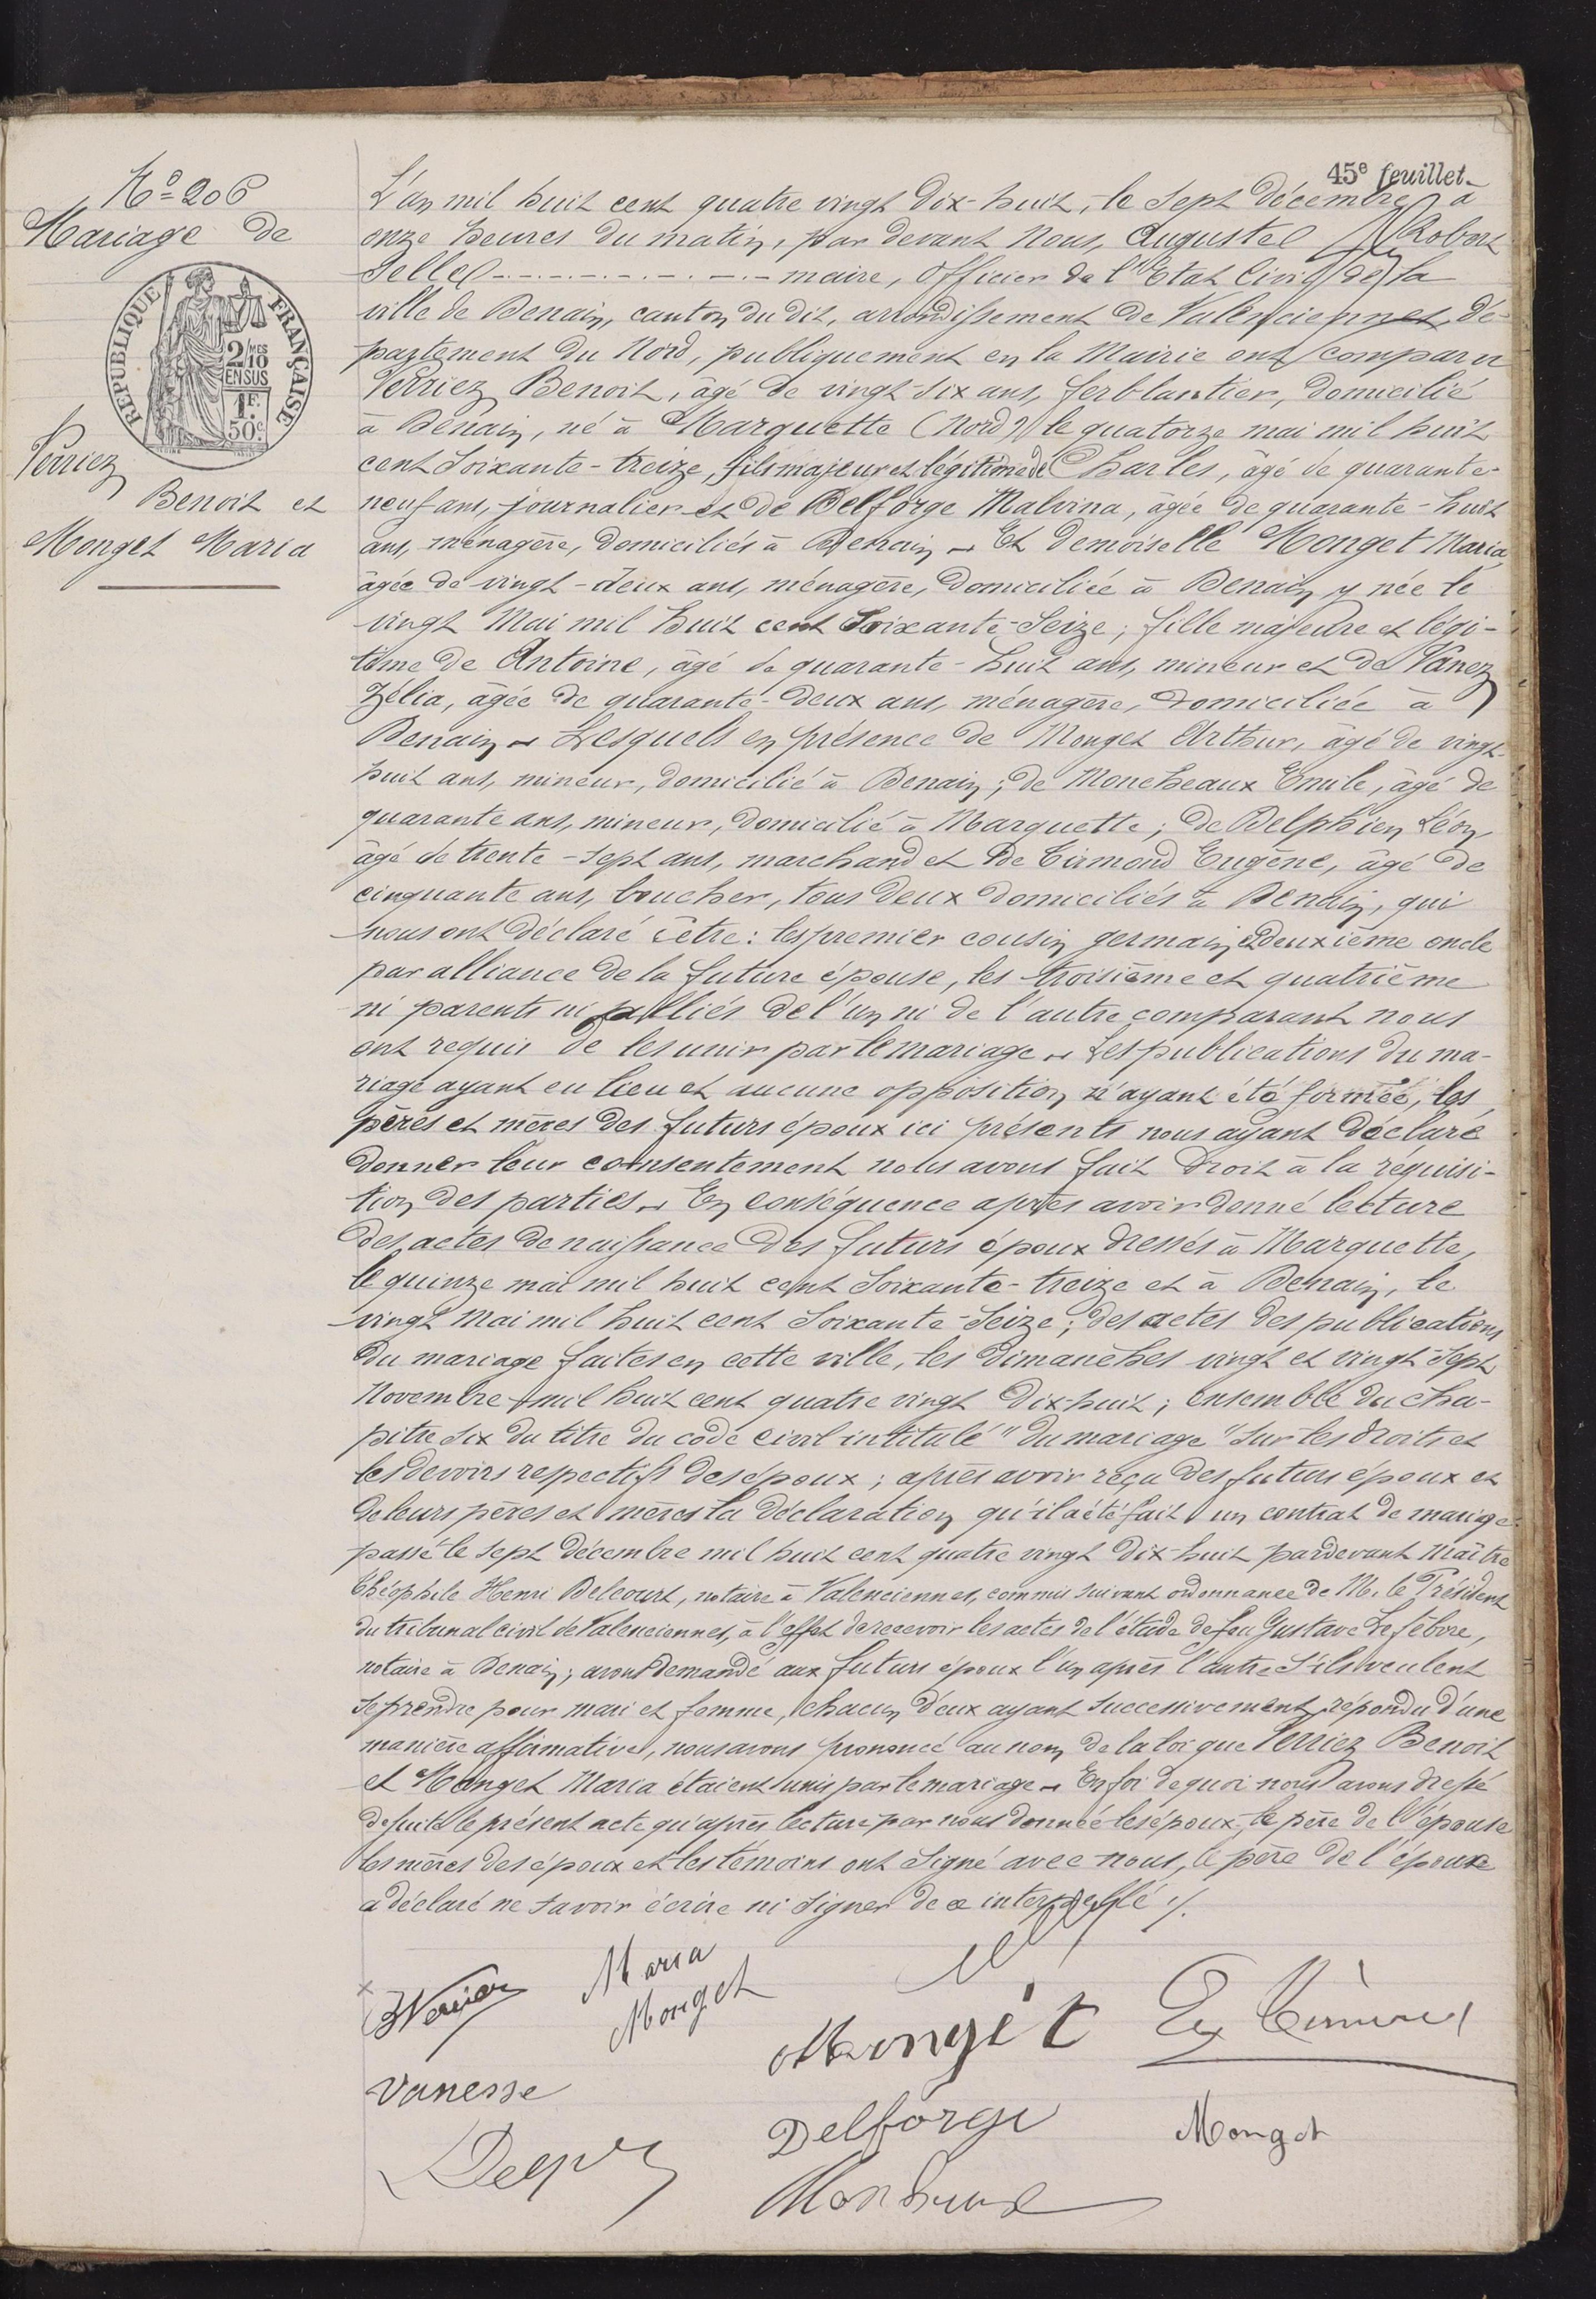 45e feuillet
No 206
Mariage de
REPUBLIQUE FRANÇAISE
2/10 MES
EN SUS
1F.
50c.
Verriez
Benoit et
Monget Maria
L'an mil huit cent quatre vingt dix-huit, le sept décembre à
onze heures du matin, par devant Nous, Auguste Robert
Selle maire, Officier de l'Etat Civil de la
ville de Denain, canton du dit, arrondissement de Valenciennes, dé-
partement du Nord, publiquement en la Mairie ont comparu
Verriez Benoit, âgé de vingt-six ans, ferblantier, domicilié
à Denain, né à Marquette (Nord) le quatorze mai mil huit
cent soixante-treize, fils majeur et légitime de Charles, âgé de quarante-
neuf ans, journalier et de Delforge Malvina, âgée de quarante-huit
ans, ménagère, domiciliés à Denain - Et demoiselle Monget Maria,
âgée de vingt-deux ans, ménagère, domiciliée à Denain y née le
vingt Mai mil huit cent soixante-seize, fille majeure et légi-
time de Antoine, âgé de quarante-huit ans, mineur et de Vanez
Zélia, âgée de quarante-deux ans, ménagère, domiciliée à
Denain - Lesquels en présence de Monget Arthur, âgé de vingt-
huit ans, mineur, domicilié à Denain; de Moncheaux Emile, âgé de
quarante ans, mineur, domicilié à Marquette; de Delphien Léon
âgé de trente-sept ans, marchand et de Tirmond Eugène, âgé de
cinquante ans, boucher, tous deux domiciliés à Denain, qui
nous ont déclaré être: les premier cousin germain et deuxième oncle
par alliance de la future épouse, les troisième et quatrième
ni parents ni alliés de l'un ni de l'autre comparant nous
ont requis de les unir par le mariage - Les publications du ma-
riage ayant eu lieu et aucune opposition n'ayant été formée, les
pères et mères des futurs époux ici présents nous ayant déclaré
donner leur consentement nous avons fait droit à la réquisi-
tion des parties - En conséquence après avoir donné lecture
des actes de naissance des futurs époux dressés à Marquette,
le quinze mai mil huit cent soixante-treize et à Denain, le
vingt Mai mil huit cent soixante-seize; des actes des publications
du mariage faites en cette ville, les dimanches vingt et vingt-sept
Novembre mil huit cent quatre vingt dix-huit; ensemble du cha-
pitre six du titre du code civil intitulé "du mariage" sur les droits et
les devoirs respectifs des époux; après avoir reçu des futurs époux et
de leurs pères et mères la déclaration qu'il a été fait un contrat de mariage
passé le sept décembre mil huit cent quatre vingt dix-huit pardevant Maître
Théophile Henri Delcourt, notaire à Valenciennes, commis suivant ordonnance de M. le Président
du tribunal civil de Valenciennes, à l'effet de recevoir les actes de l'étude de feu Gustave Lefebvre,
notaire à Denain; avons demandé aux futurs époux l'un après l'autre s'ils veulent
se prendre pour mari et femme, chacun d'eux ayant successivement répondu d'une
manière affirmative, nous avons prononcé au nom de la loi que Verriez Benoit
et Monget Maria étaient unis par le mariage - En foi de quoi nous avons dressé
de suite le présent acte qu'après lecture par nous donnée les époux, le père de l'épouse
les mères des époux et les témoins ont signé avec nous, le père de l'époux
a déclaré ne savoir écrire ni signer de ce interpellé ./.
Maria
Monget
Monget
Vanesse
Delforge
Monget